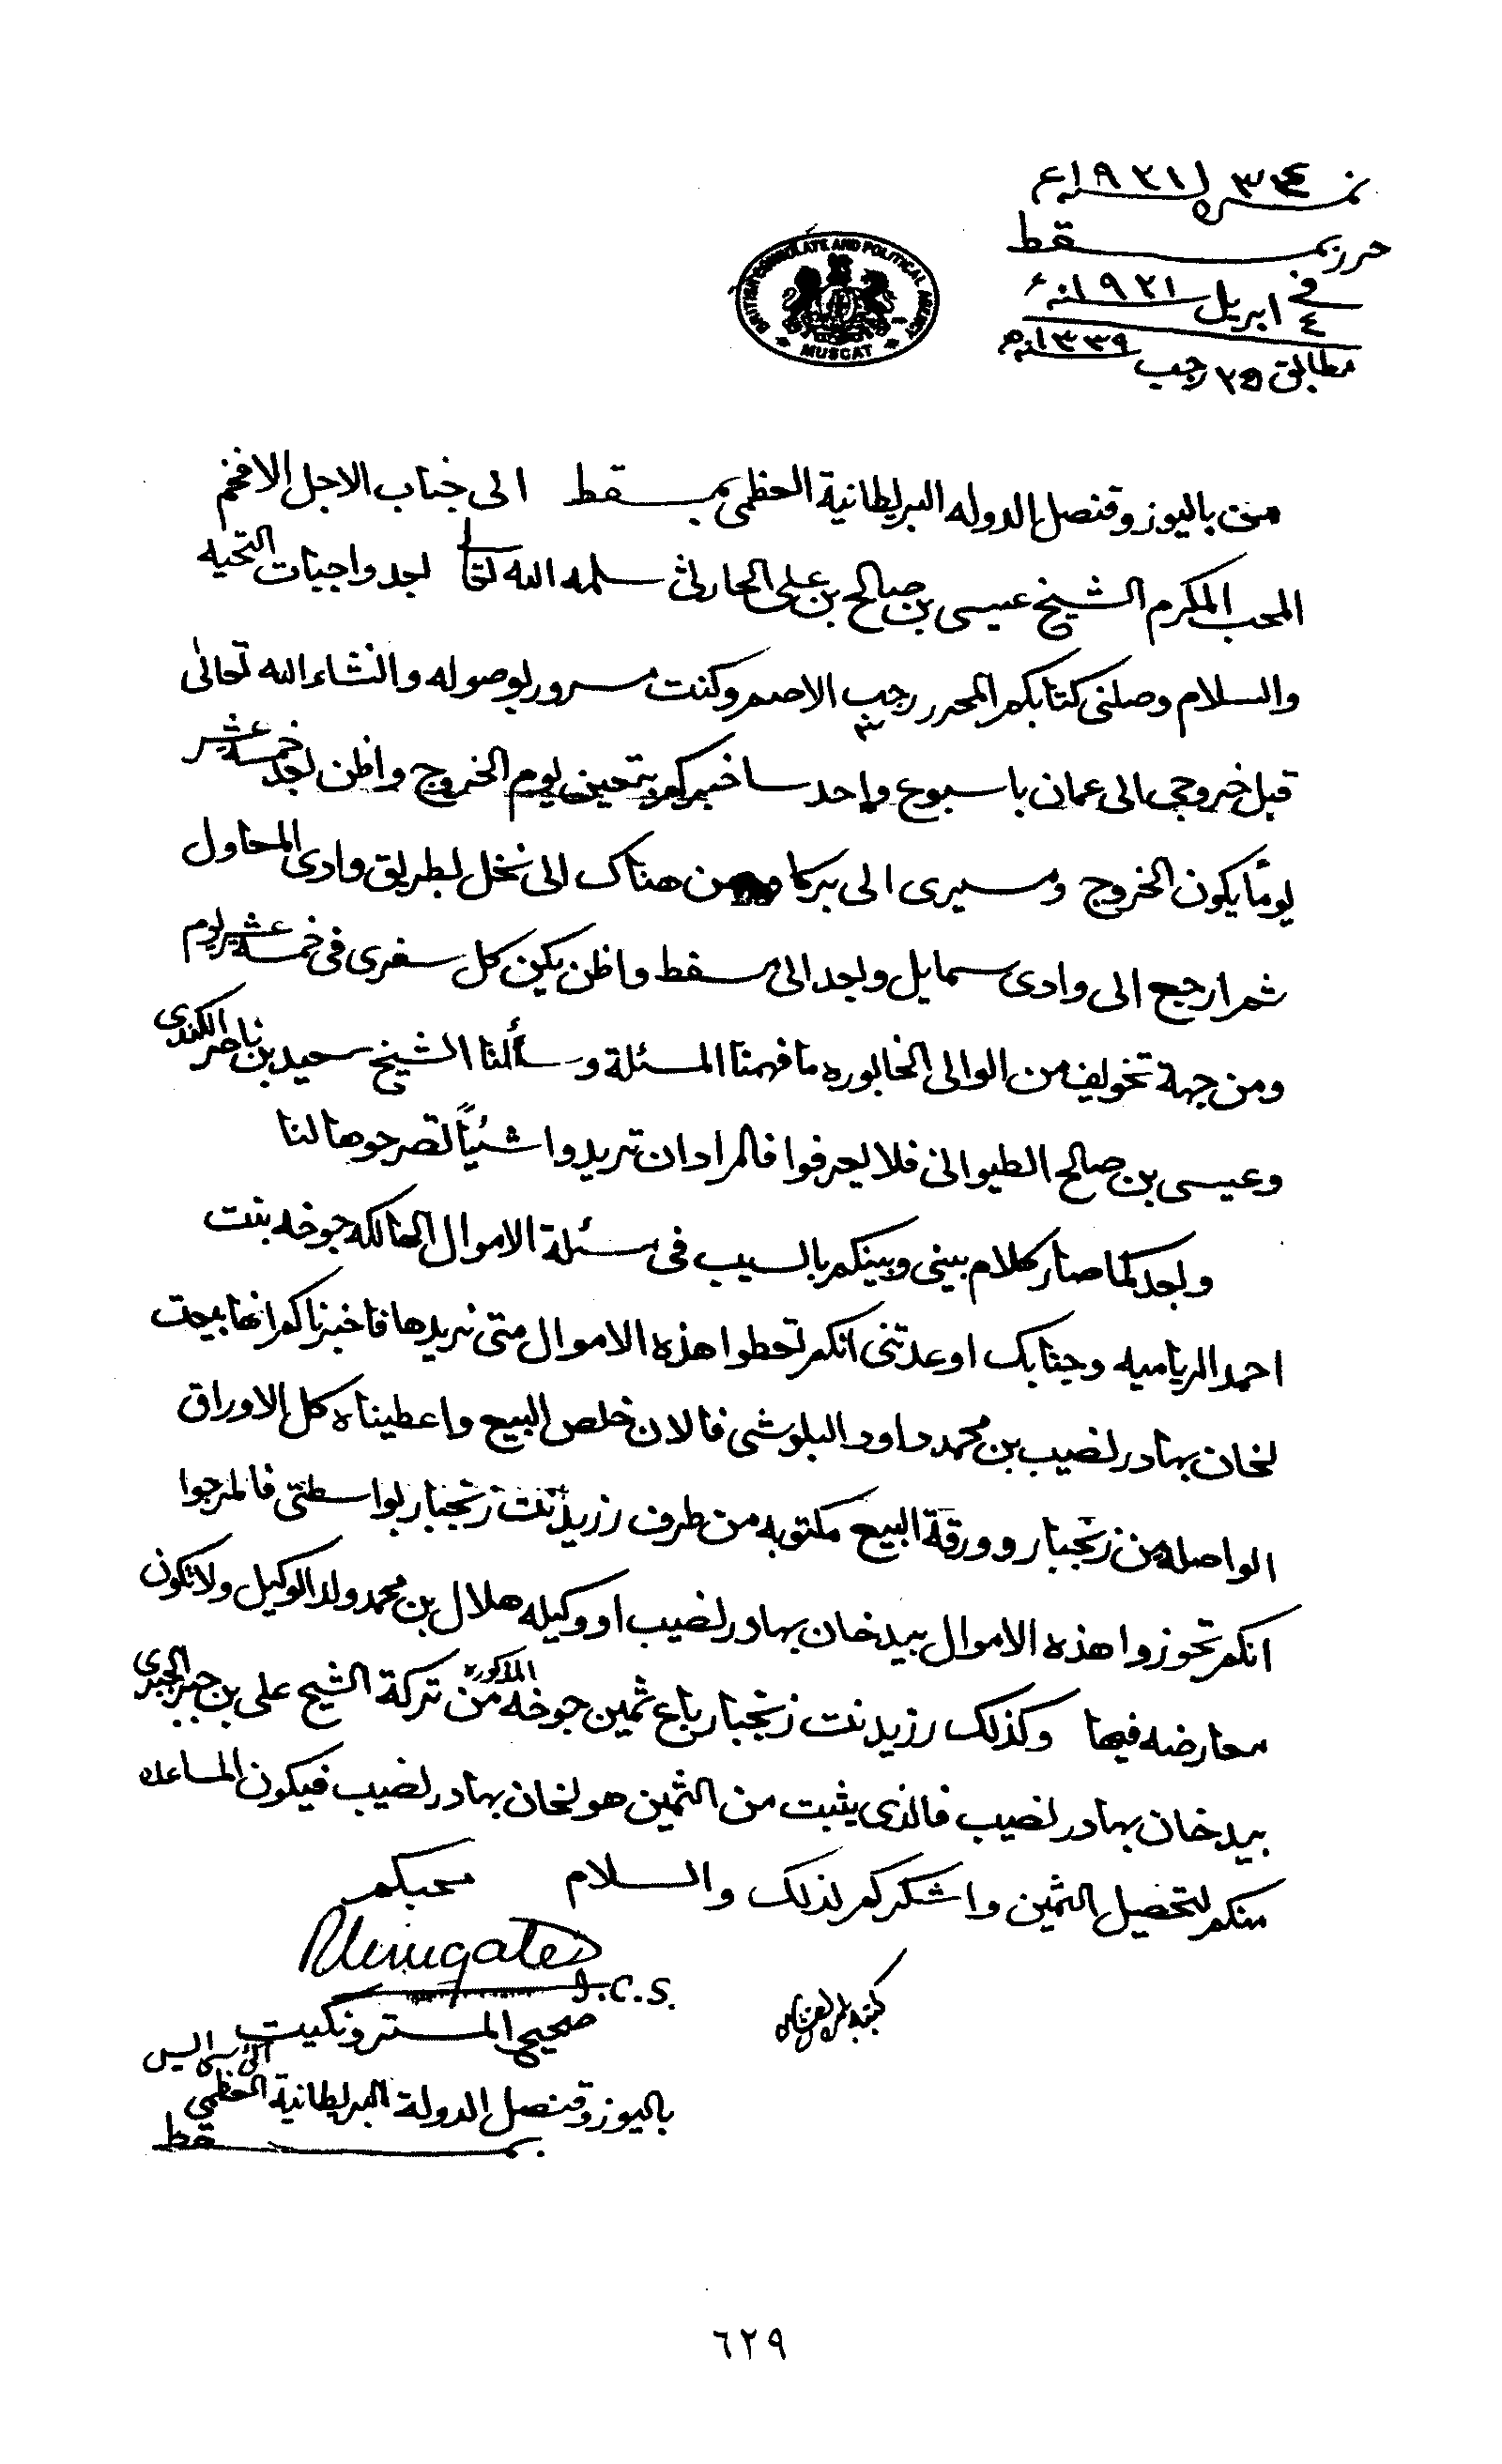 نمره ٣٣٤ ل ١٩٢١ع
حرر بمسقط
في ٤ ابريل سنه ١٩٢١ء
مطابق ٢٥ رجب سنه ١٣٣٩ه
BRITISH CONSULATE AND POLITICAL AGENCY
MUSCAT
من باليوز وقنصل الدوله البريطانية العظمى بمسقط الى جناب الاجل الافخم
المحب المكرم الشيخ عيسى بن صالح بن على الحارثى سلمه الله تعالى بعد واجبات التحيه
والسلام وصلنى كتابكم المحرر رجب الاصم وكنت مسرور بوصوله وانشاء الله تعالى
قبل خروجى الى عمان باسبوع واحد ساخبركم بتعين يوم الخروج واظن بعد خمسة عشر
يوماً يكون الخروج ومسيرى الى بركا ومن هناك الى نخل بطريق وادى المعاول
ثم ارجع الى وادى سمايل وبعد الى مسقط واظن يكن كل سفرى فى خمسة عشر يوم
ومن جهة تخويف من الوالى الخابوره ما فهمنا المسئلة وسألنا الشيخ سعيد بن ناصر الكندى
وعيسى بن صالح الطيوانى فلا يعرفوا فالمراد ان تريدوا شئياً تصرحوها لنا
وبعد كما صار كلام بينى وبينكم بالسيب فى مسئلة الاموال الهالكه جوخه بنت
احمد الريامیه وجنابك اوعدتنى انكم تعطوا هذه الاموال متى نريدها فاخبرناكم انها بيعت
لخان بهادر نصيب بن محمد داود البلوشى فالان خلص البيع واعطيناه كل الاوراق
الواصله من زنجبار وورقة البيع مكتوبه من طرف رزيدنت زنجبار بواسطتى فالمرجوا
انكم تحوزوا هذه الاموال بيد خان بهادر نصيب او وكيله هلال بن محمد ولد الوكيل ولا تكون
معارضه فيها وكذلك رزيدنت زنجبار باع ثمين جوخه المذكوره من تركة الشيخ على بن جبر الجبرى
بيد خان بهادر نصيب فالذى يثبت من الثمين هو لخان بهادر نصيب فيكون المساعده
منكم لتحصيل الثمين واشكركم لذلك والسلام
محبكم
RWingate
I.C.S.
صحيح المستر ونكيت
آئى سى ايس
باليوز وقنصل الدولة البريطانية العظمى
بمسقط
٦٢٩